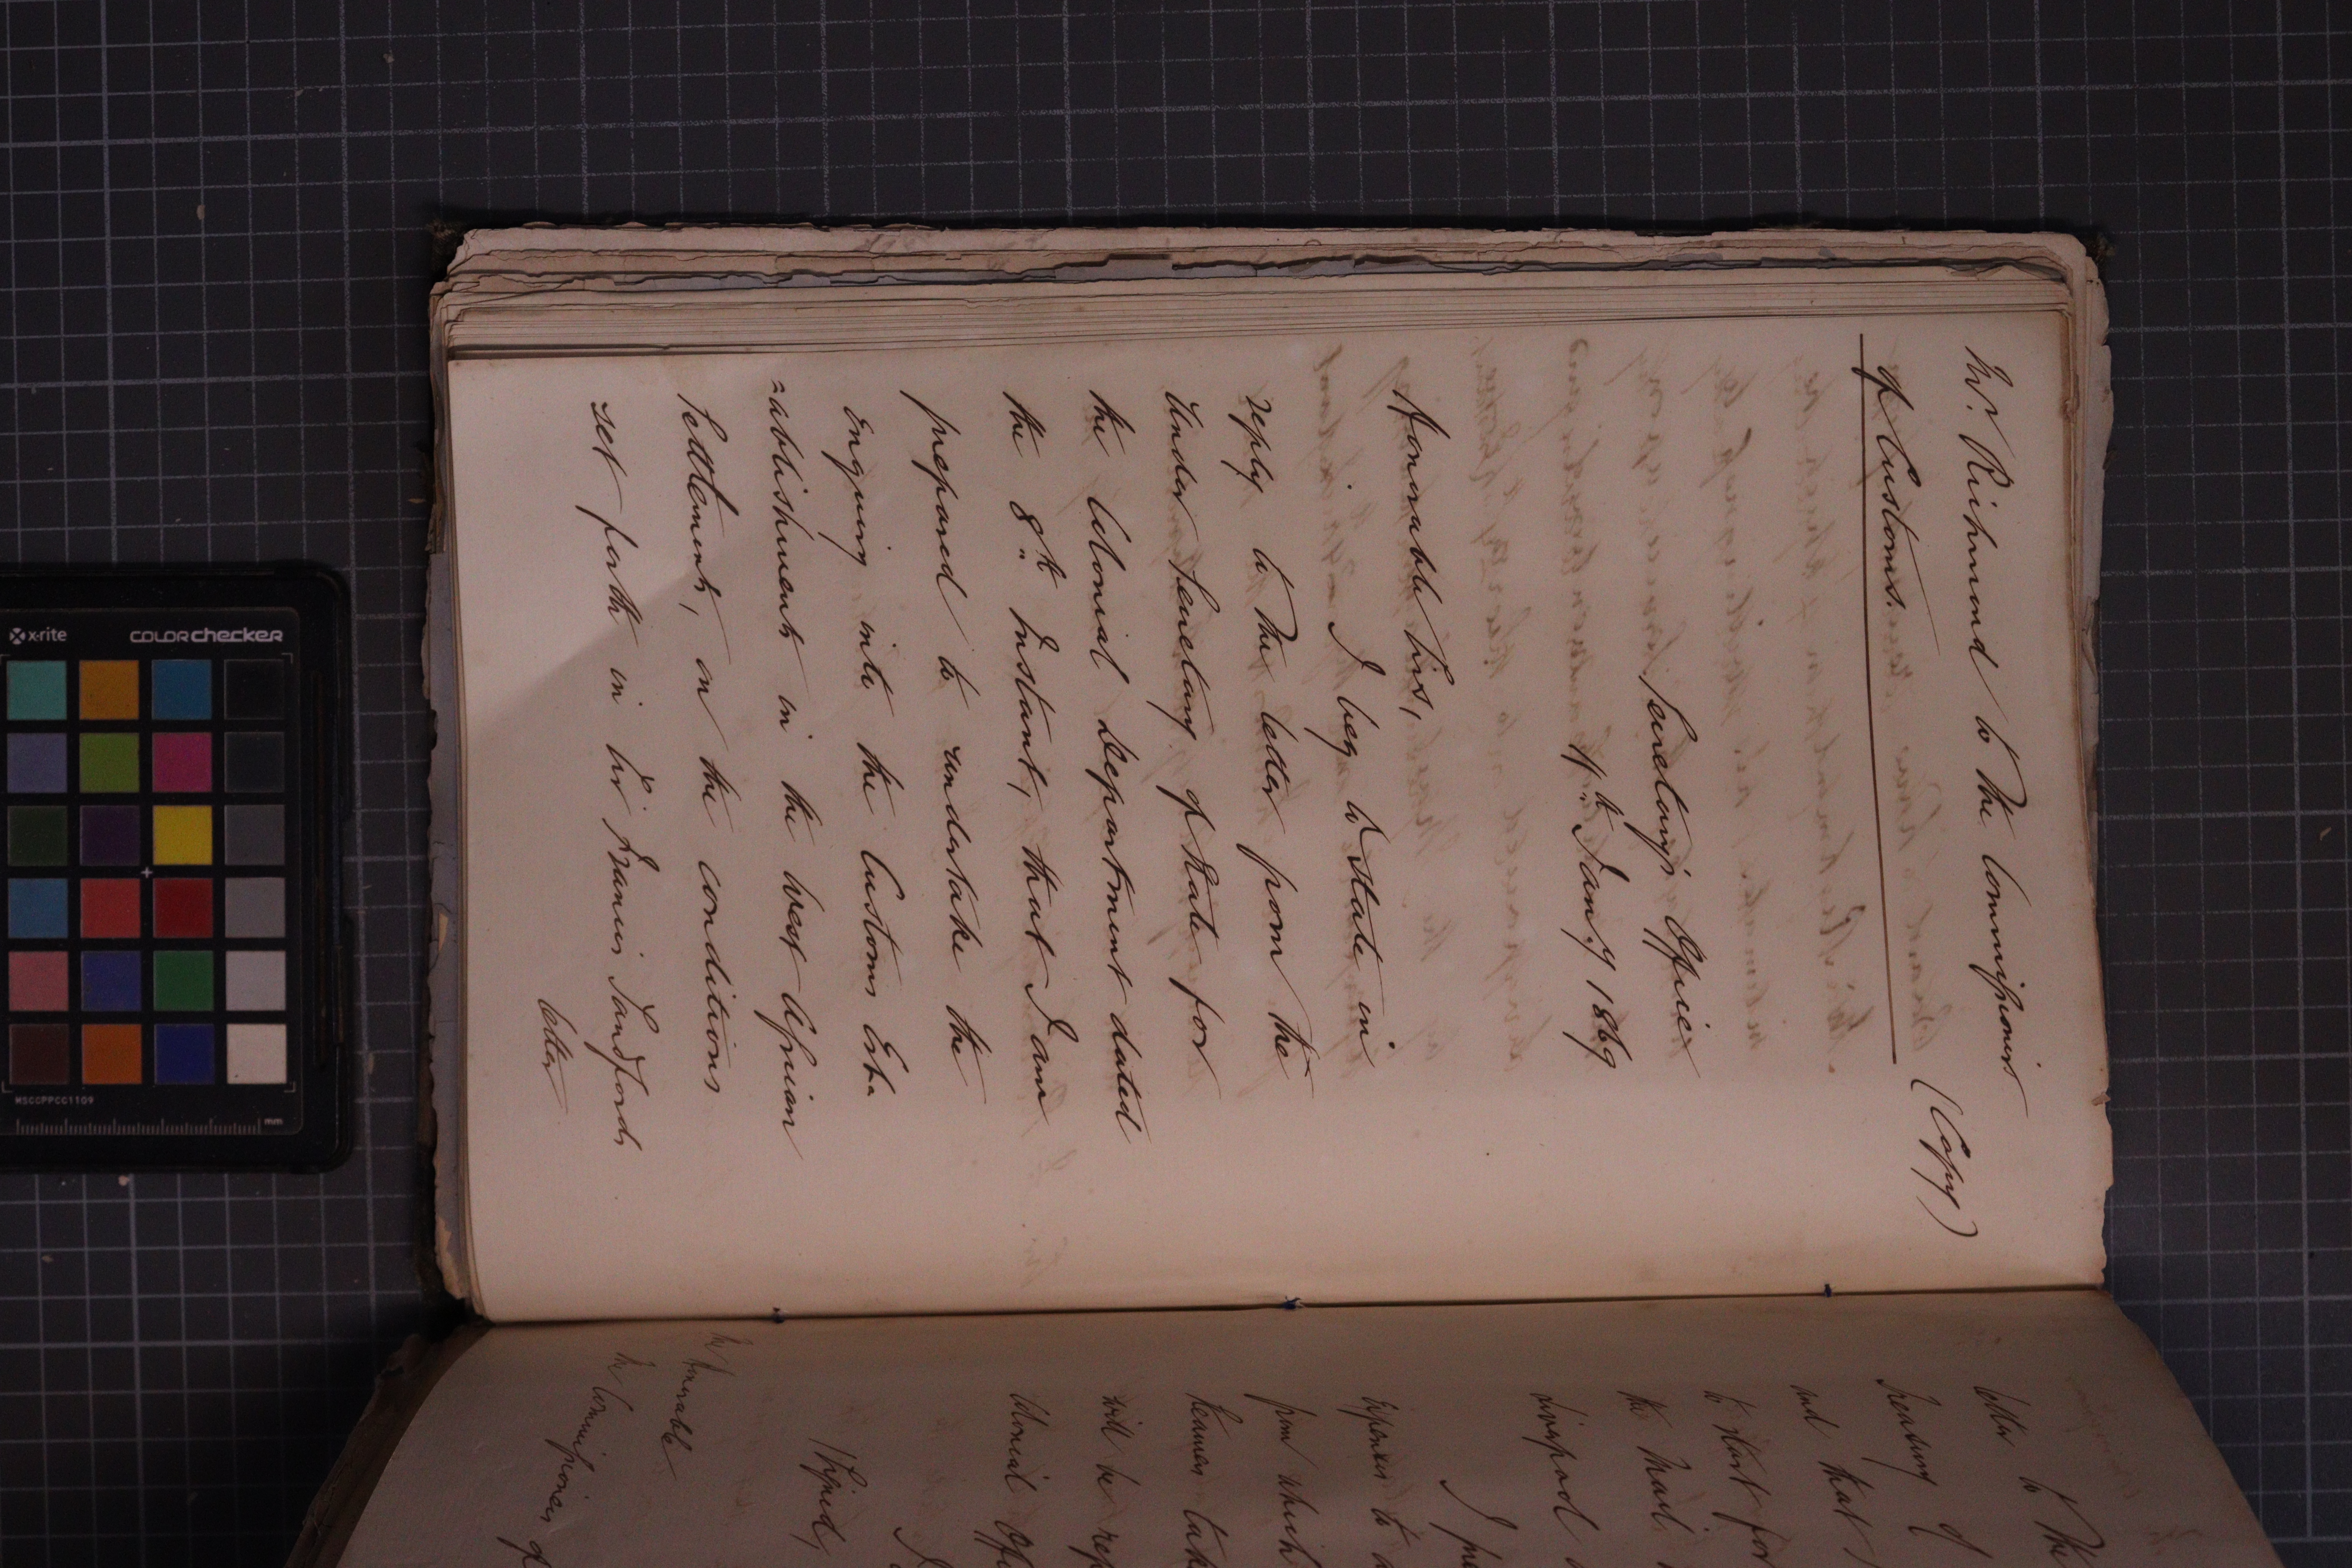 Mr. Richmond to The Commissioners
of Customs.
(Copy)
Secretary's Office
11th Jany 1869
Honorable Sirs,
I beg to state in
reply to the letter from the
Under Secretary of State for
the Colonial Department dated
the 8th Instant, that I am
prepared to undertake the
Enquiry into the Customs Est-
=ablishments in the West African
Settlements, on the conditions
set forth in Sir Francis Sandfords
letter
letter to The
Treasury of
and that
to start for
the Mail
Liverpool
Expenses to
from which
taken
will be
Colonial
I
(Signed)
The Honorable
The Commissioners of
x-rite COLORchecker
MSCCPPCC1109
mm